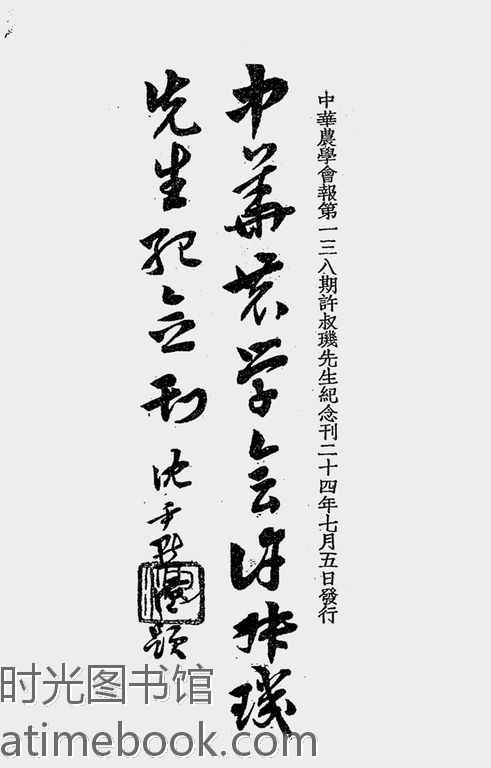 中華農學會報第一三八期許叔璣先生紀念刊二十四年七月五日發行
中華农学会许叔璣
先生紀念刊
沈尹默 題
时光图书馆
atimebook.com